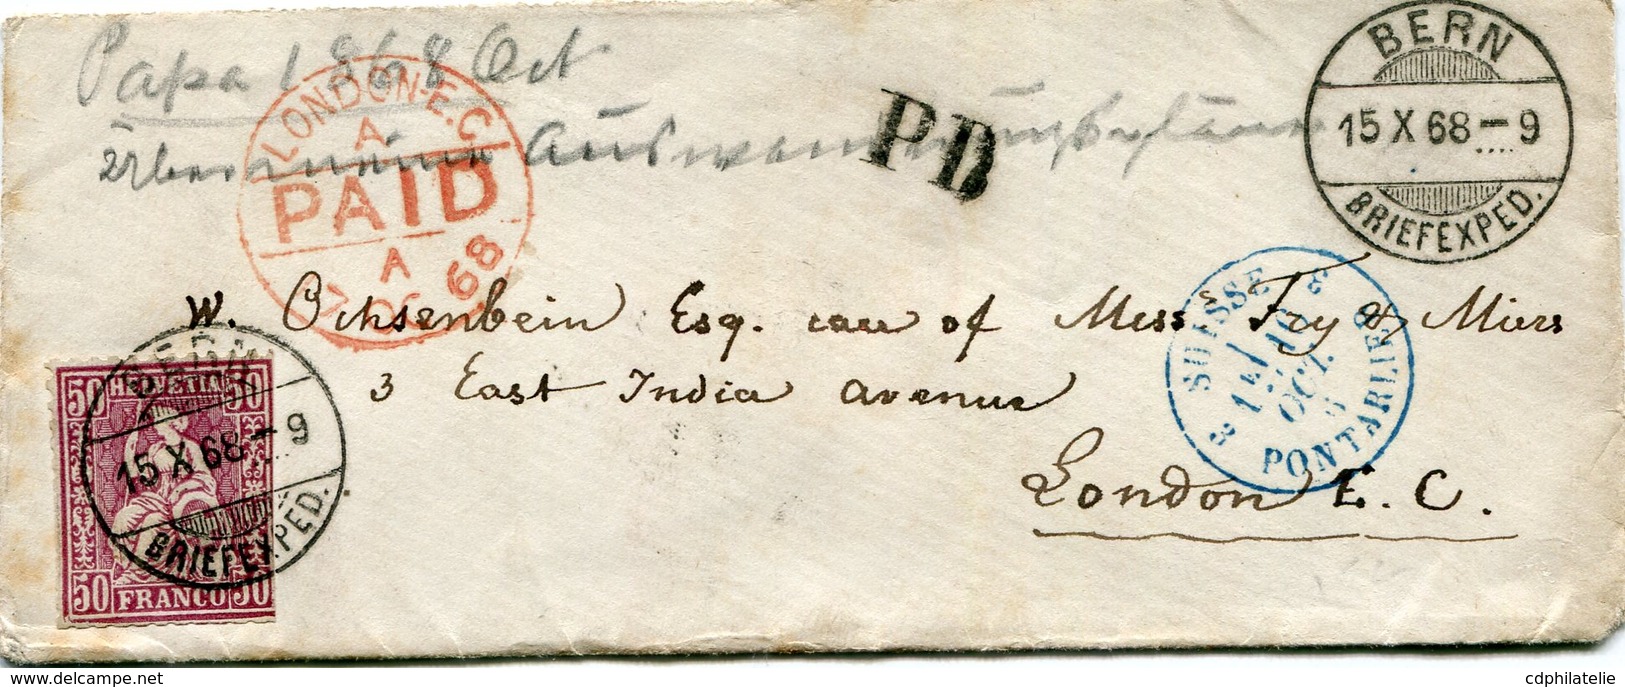 Papa 1868 Oct
über meine Auswanderungspläne
LONDON-E.C
A
PAID
A
17 OC 68
PD
BERN
15 X 68 – 9
BRIEFEXPED.
W. Ochsenbein Esq. care of Mess Fry & Miers
3 East India Avenue
London E. C.
SUISSE
16
OCT.
68
PONTARLIER
50 HELVETIA 50
50 FRANCO 50
BERN
15 X 68 – 9
BRIEFEXPED.
cdphilatelie